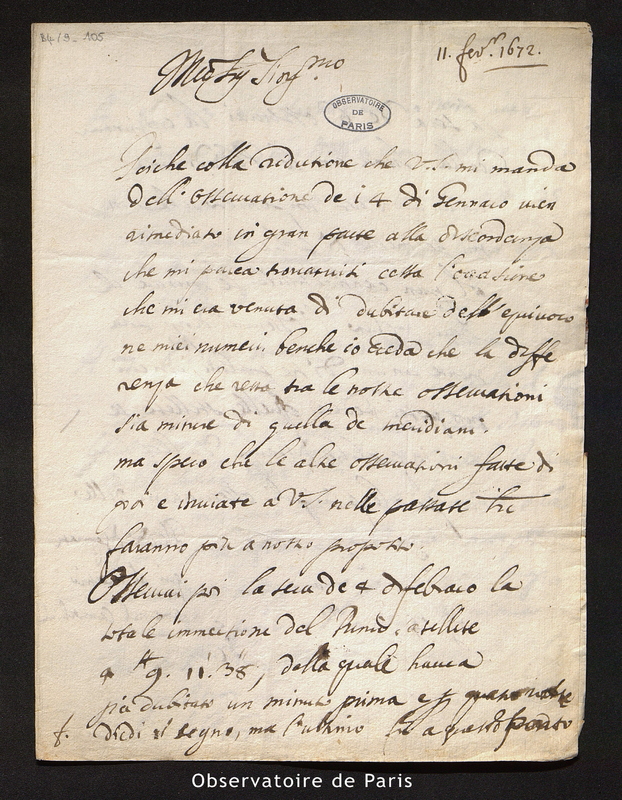 B4/9-105
11. fevr. 1672.
OBSERVATOIRE
DE
PARIS
Poiche colla reductione che V.S. mi manda
dell' osservatione de i 4 di Gennaro vien
rimediato in gran parte alla discordanza
che mi parea trovarvisi cessa l'occasione
che mi era venuta di dubitare dell' equivoco
ne miei numeri. benche io creda che la diffe
renza che resta tra le nostre osservationi
sia minore di quella de meridiani.
ma spero che le altre osservationi fatte di
poi e inviate a V.S. nelle passate
saranno più a nostro proposito.
Osservai poi la sera de 4 di febraro la
totale immersione del Primo satellite
a H 9. 11. 38, della quale havea
già dubitato un minuto prima e
diedi il segno, ma l'ultimo fu a questo
Observatoire de Paris